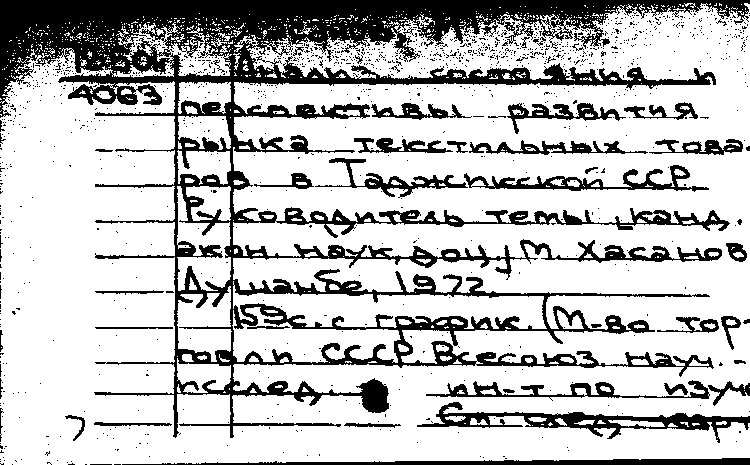 Хасанов, М
Анализ состояния и
4063 перспективы развития
рынка текстильных това-
ров в Таджикской ССР.
Руководитель темы [канд.
экон. наук, доц.] М. Хасанов
Душанбе, 1972.
159с. с график. (М-во тор-
говли СССР. Всесоюз. науч.-
исслед. ин-т по изуче
См. след. карт